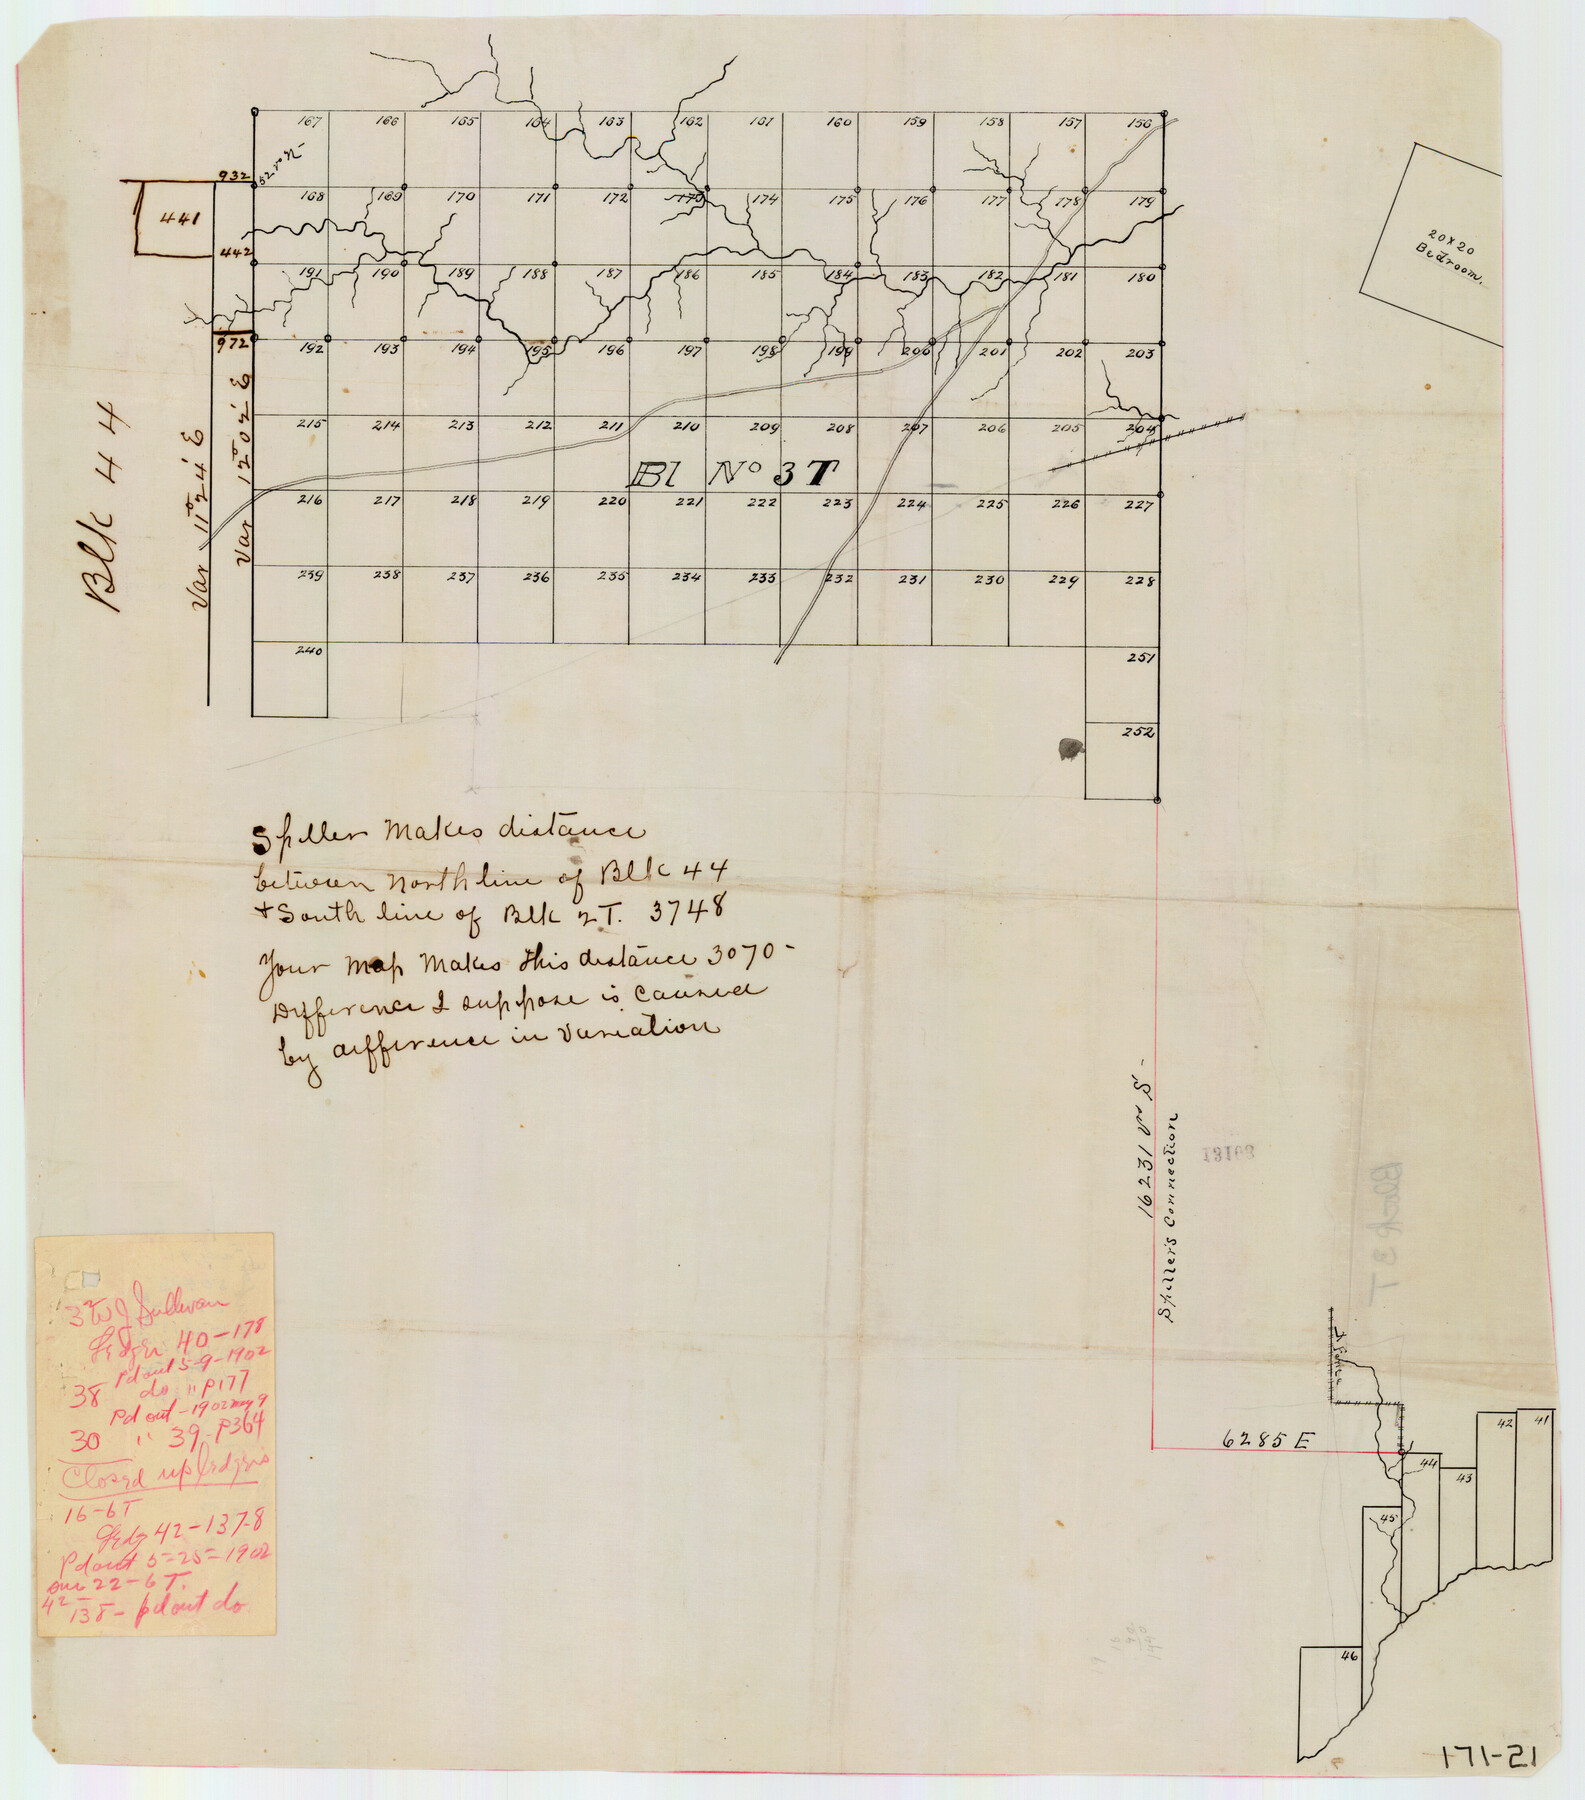 167 166 165 164 163 162 161 160 159 158 157 156
52 vrs N
932
168 169 170 171 172 173 174 175 176 177 178 179
441
442
191 190 189 188 187 186 185 184 183 182 181 180
972
192 193 194 195 196 197 198 199 200 201 202 203
215 214 213 212 211 210 209 208 207 206 205 204
Bl No 3T
216 217 218 219 220 221 222 223 224 225 226 227
239 238 237 236 235 234 233 232 231 230 229 228
240 251
252
Blk 44
Var 11° 24' E
Var 12° 02' E
20 x 20
Bedroom.
Spiller makes distance
between north line of Blk 44
+ South line of Blk 2T. 3748
Your map makes this distance 3070-
Difference I suppose is caused
by difference in variation
16231 vrs S-
Spiller's Connection
13103
Block 3 T
6285 E
42 41
44 43
45
46
W J Sullivan
Ledger 40-178
Pd out 5-9-1902
38 do " P177
Pd out-1902 May 9
30 " 39-P364
Closed up ledgers
16-6T
Ledg 42-137-8
Pd out 5-25-1902
sur 22-6T.
42-138- pd out do
171-21